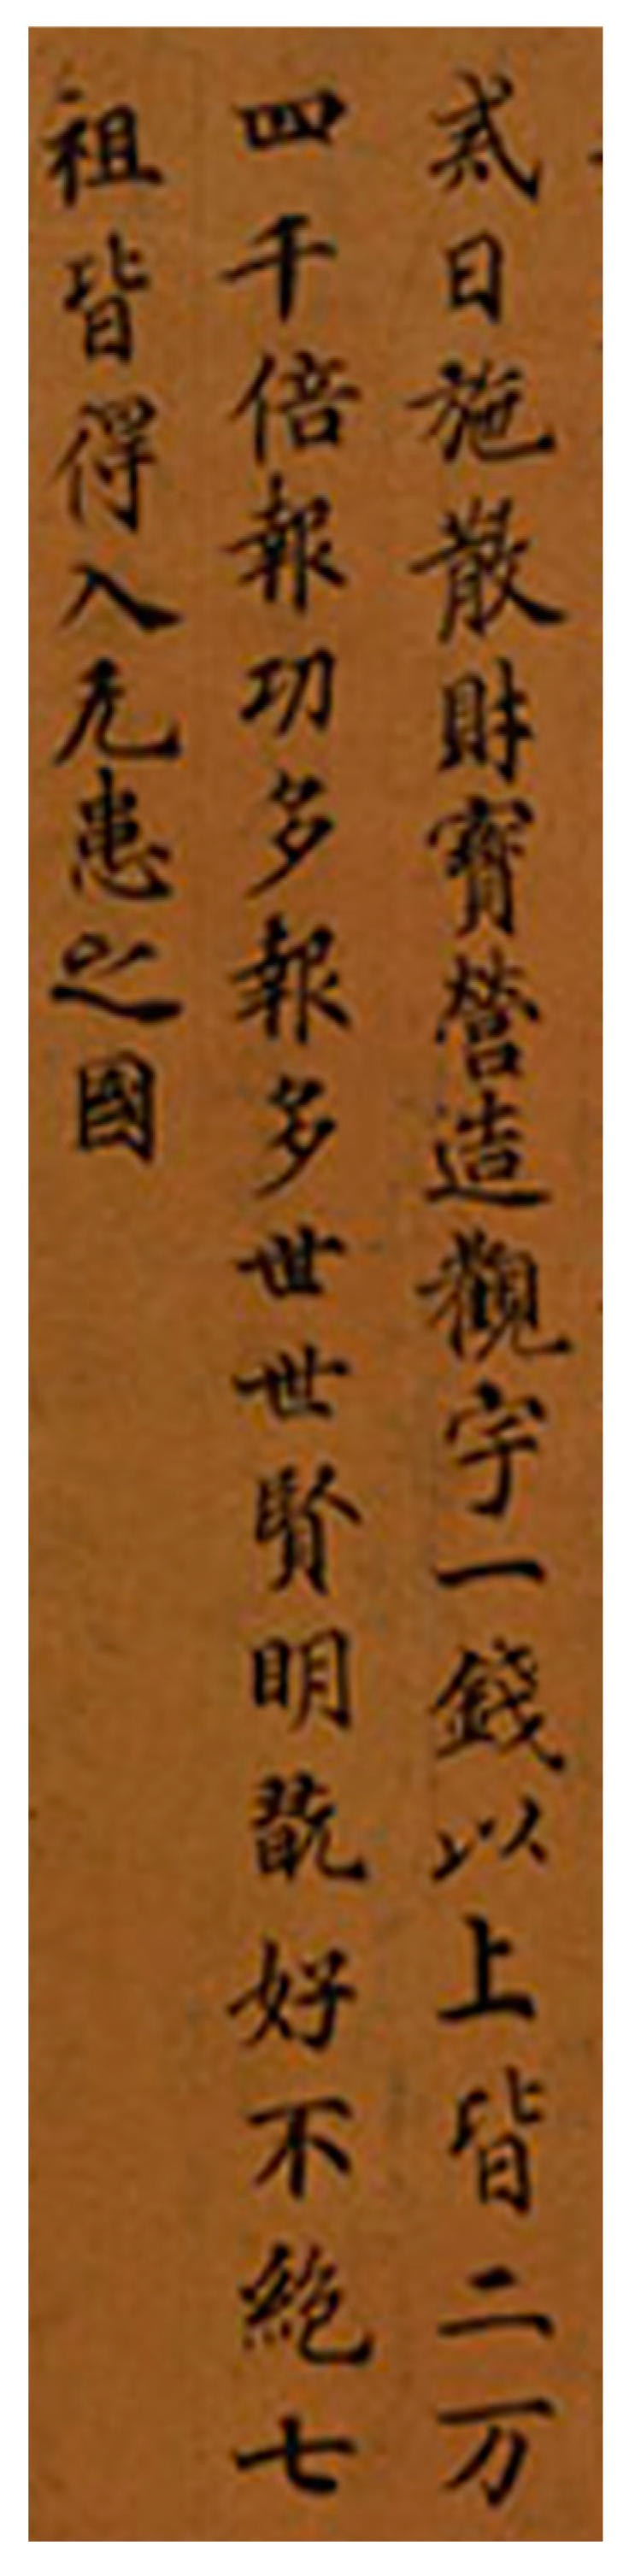 貳曰施散財寶營造觀宇一錢以上皆二万
四千倍報功多報多世世賢明翫好不絕七
祖皆得入无患之國